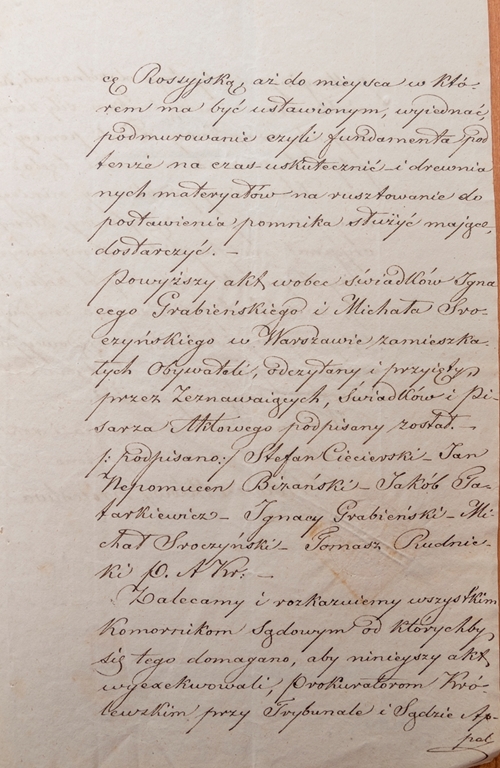 cę Rossyjską, aż do mieysca w któ-
rem ma być ustawionym, wyiednać,
podmurowanie czyli fundamenta pod
tenże na czas uskutecznić i drewnia
nych materyałów na rusztowanie do
postawienia pomnika służyć mające,
dostarczyć. –
Powyższy akt wobec świadków Igna
cego Grabieńskiego i Michała Sro-
czyńskiego w Warszawie zamieszka-
łych Obywateli, odczytany i przyięty,
przez Zeznawaiących, Świadków i Pi-
sarza Aktowego podpisany został. –
/: podpisano:/ Stefan Ciecierski – Jan
Nepomucen Bizański – Jakób Ta-
tarkiewicz – Ignacy Grabieński – Mi-
chał Sroczyński – Tomasz Rudnic-
ki P. A. Kr: –
Zalecamy i rozkazuiemy wszystkim
Komornikom Sądowym od którychby
się tego domagano, aby ninieyszy akt
wyexekwowali, Prokuratorom Kró-
lewskim przy Trybunale i Sądzie Ap-
pel